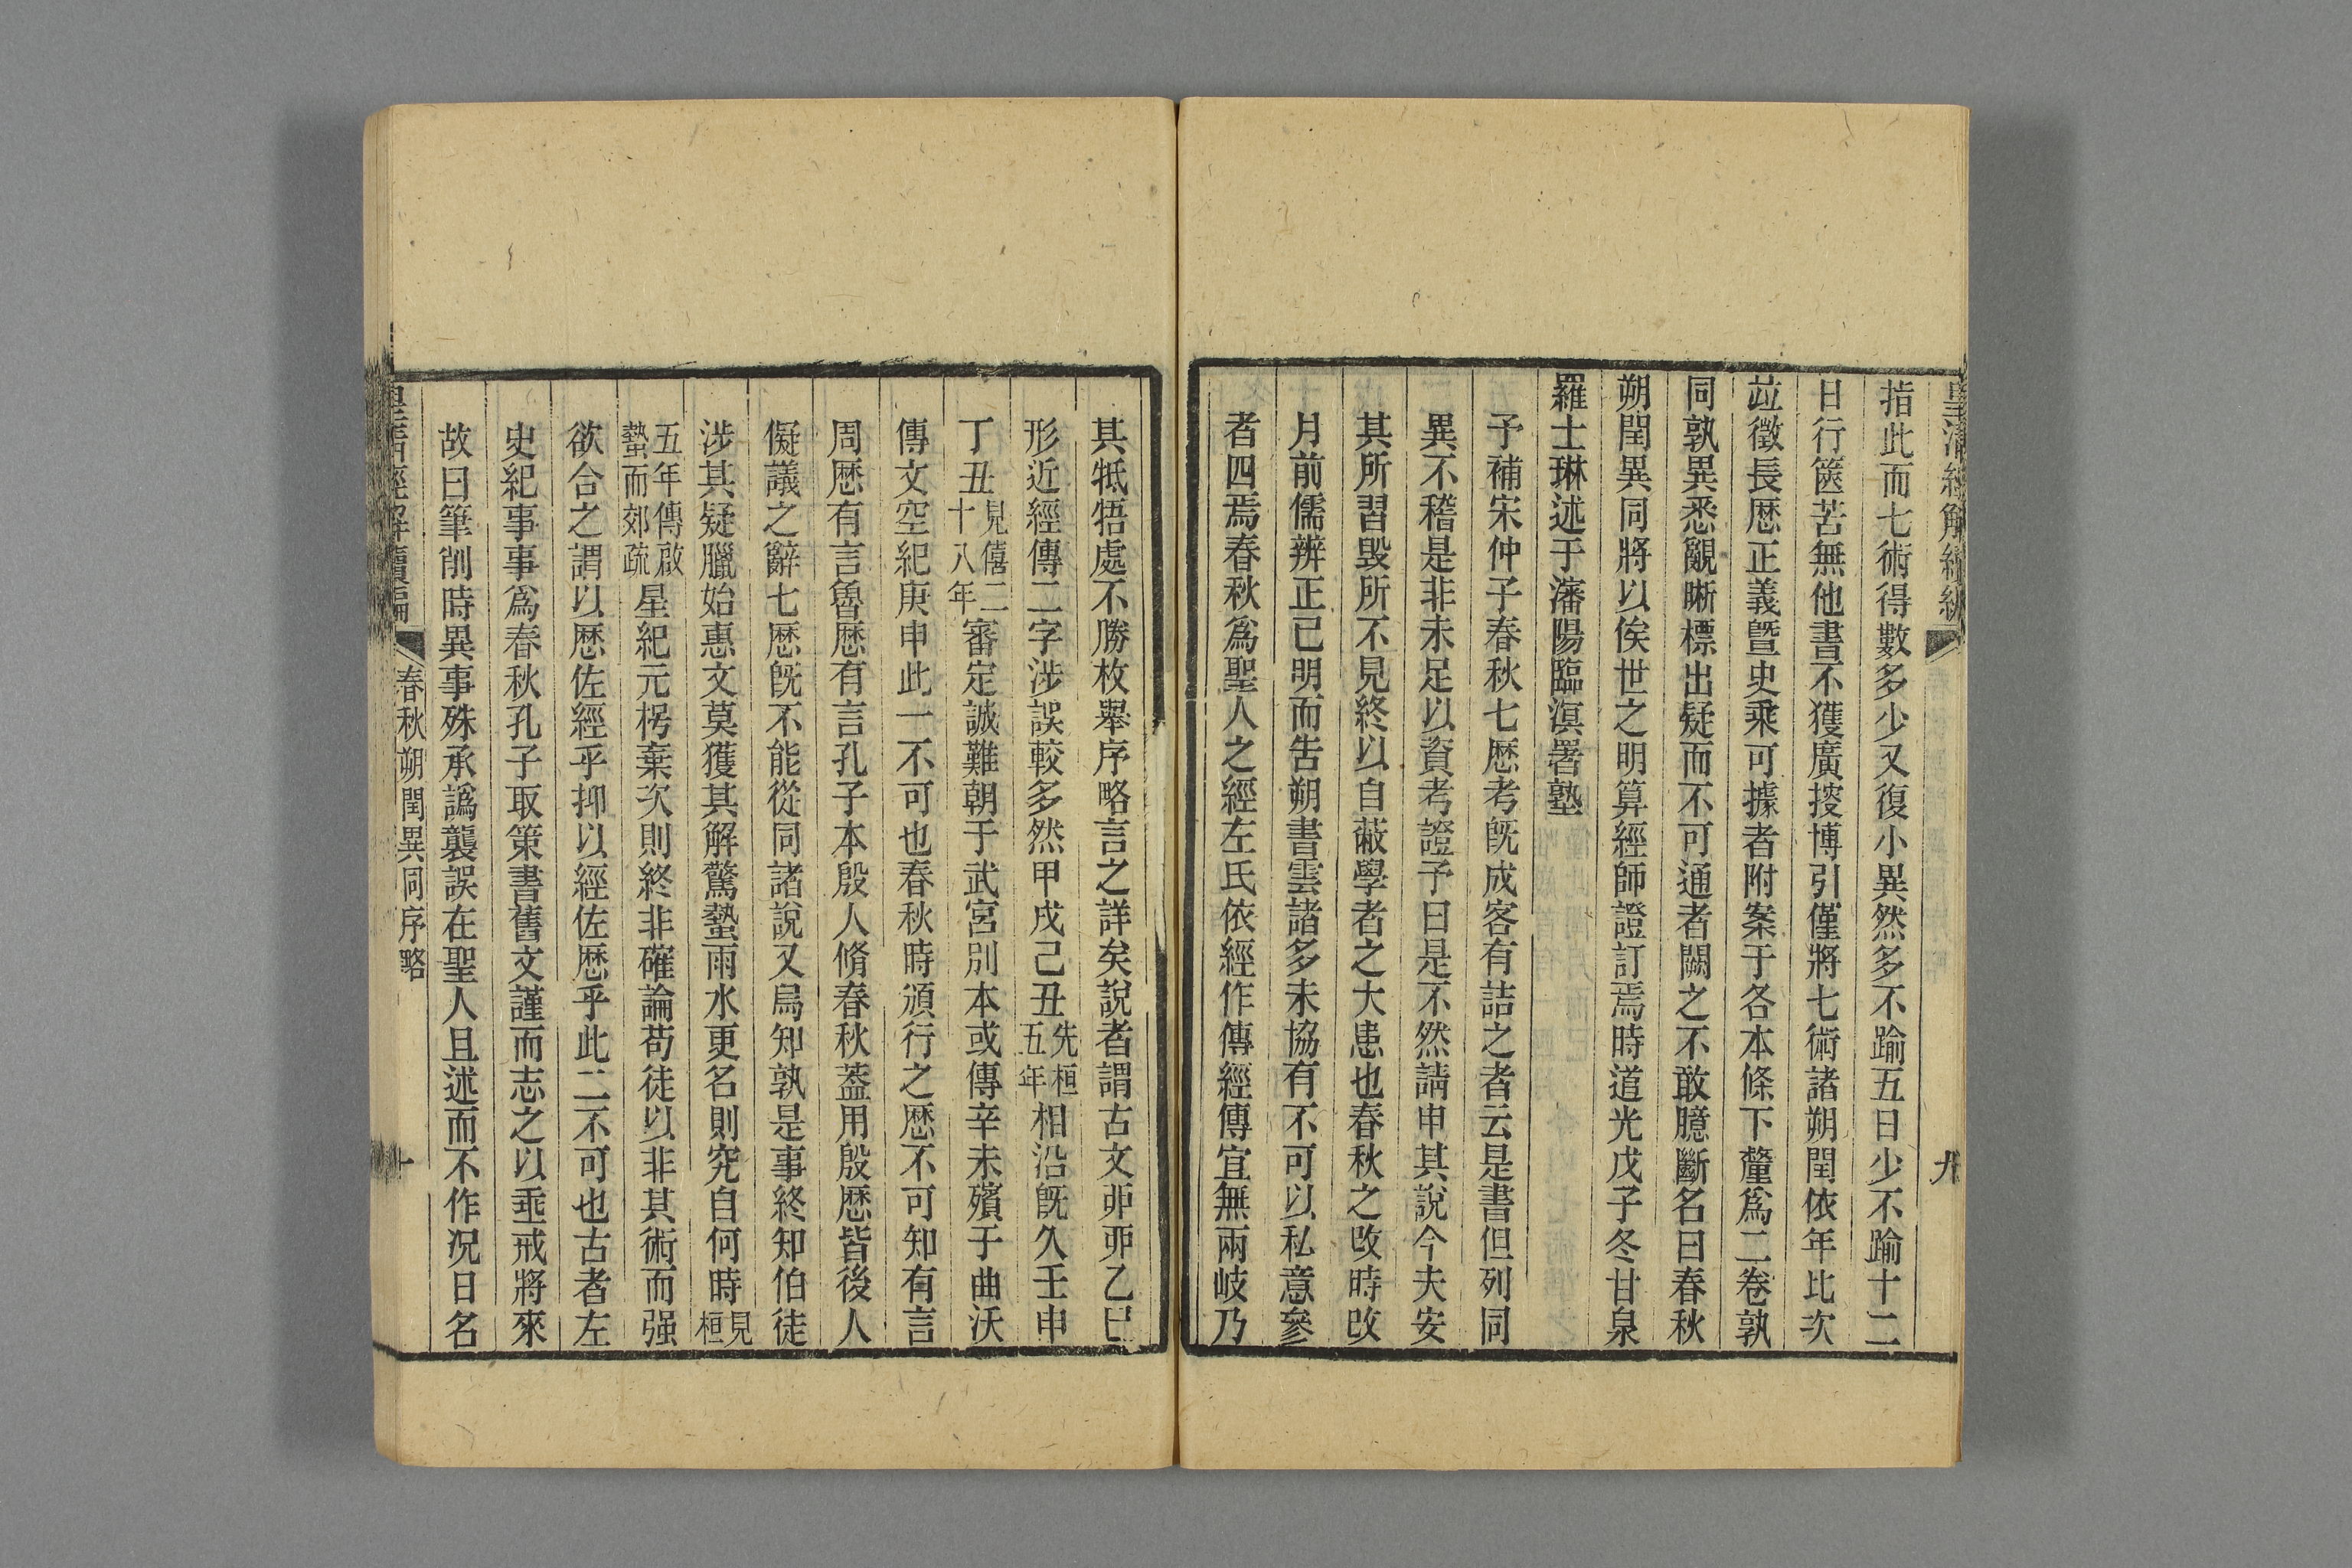 皇清經解續編
九
指此而七術得數多少又復小異然多不踰五日少不踰十二
日行篋苦無他書不獲廣援博引僅將七術諸朔閏依年比次
竝徵長厯正義曁史乘可據者附案于各本條下釐爲二卷孰
同孰異悉覼晰標出疑而不可通者闕之不敢臆斷名曰春秋
朔閏異同將以俟世之明算經師證訂焉時道光戊子冬甘泉
羅士琳述于瀋陽臨溟署塾
予補宋仲子春秋七厯考旣成客有詰之者云是書但列同
異不稽是非未足以資考證予曰是不然請申其說今夫安
其所習毀所不見終以自蔽學者之大患也春秋之改時改
月前儒辨正已明而告朔書雲諸多未協有不可以私意參
者四焉春秋爲聖人之經左氏依經作傳經傳宜無兩岐乃
其牴牾處不勝枚舉序略言之詳矣說者謂古文丣戼乙巳
形近經傳二字涉誤較多然甲戌己丑先桓五年相沿旣久壬申
丁丑見僖二十八年審定誠難朝于武宮別本或傳辛未殯于曲沃
傳文空紀庚申此一不可也春秋時頒行之厯不可知有言
周厯有言魯厯有言孔子本殷人脩春秋葢用殷厯皆後人
儗議之辭七厯旣不能從同諸說又烏知孰是事終知伯徒
涉其疑臘始惠文莫獲其解驚蟄雨水更名則究自何時見桓
五年傳啟蟄而郊疏星紀元枵棄次則終非確論苟徒以非其術而强
欲合之謂以厯佐經乎抑以經佐厯乎此二不可也古者左
史紀事事爲春秋孔子取策書舊文謹而志之以垂戒將來
故曰筆削時異事殊承譌襲誤在聖人且述而不作況日名
皇清經解續編
春秋朔閏異同序略
十